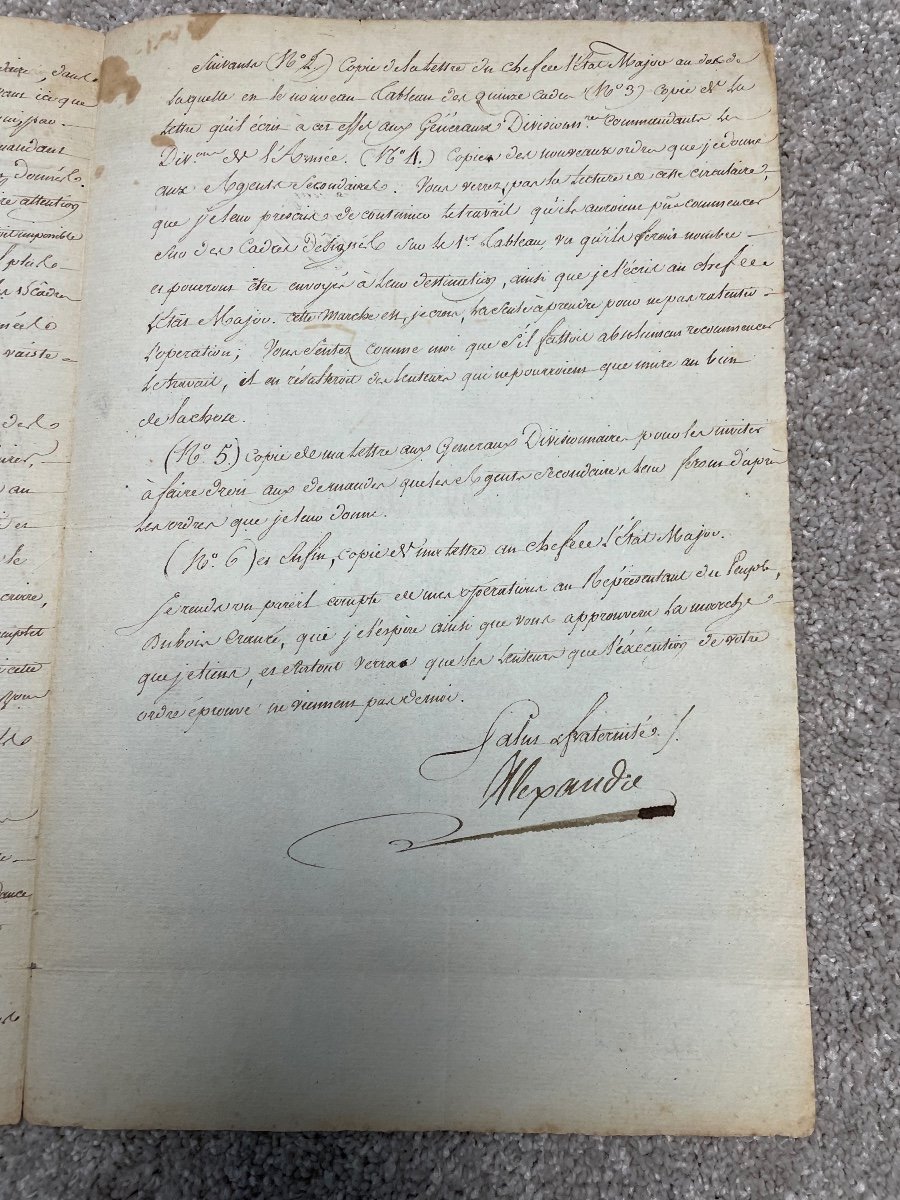 Suivante (N.º 2.) Copie de la lettre du chef de l'État Major au dos de
laquelle est le nouveau tableau des quinze cadres (N.º 3) copie de la
lettre qu'il écrit à cet effet aux Généraux Divisionn.res commandants les
Div.ons de l'Armée. (N.º 4.) Copie des nouveaux ordres que je donne
aux Agents Secondaires. Vous verrez, par la lecture de cette circulaire,
que je leur prescris de continuer le travail qu'ils auroient pu commencer
sur des Cadres désignés sur le 1.er tableau, vu qu'ils seront nombre
et pourront être envoyés à leur destination, ainsi que je l'écris au chef de
l'État Major. cette marche est, je crois, la seule à prendre pour ne pas ralentir
l'opération; Vous sentez comme moi que s'il falloit absolument recommencer
le travail, il en résulteroit des lenteurs qui ne pourroient que nuire au bien
de la chose.
(N.º 5.) copie de ma lettre aux Généraux Divisionnaires pour les inviter
à faire droit aux demandes que les Agents Secondaires leur feront d'après
les ordres que je leur donne.
(N.º 6) et enfin, copie de ma lettre au chef de l'État Major.
Je rends un pareil compte de mes opérations au Représentant du Peuple,
Dubois Crancé, qui je l'espère ainsi que vous approuvera la marche
que je tiens, et verra que les lenteurs que l'exécution de votre
ordre éprouve ne viennent pas de moi.
Salut & fraternité.
Alexandre
dans
ici que
donnés.
attention
impossible
au
et
le
croire,